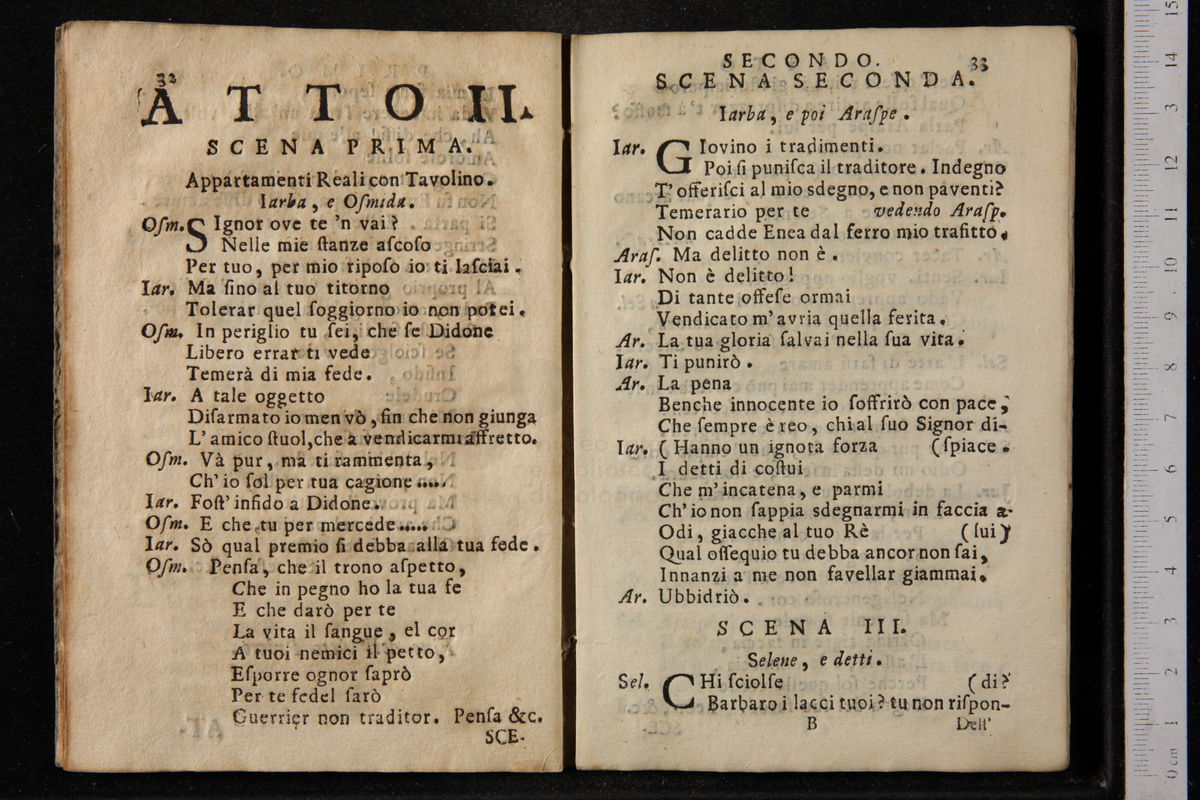 32
ATTO II.
SCENA PRIMA.
Appartamenti Reali con Tavolino.
Iarba, e Oſmida.
Oſm. SIgnor ove te 'n vai?
Nelle mie ſtanze aſcoſo
Per tuo, per mio ripoſo io ti laſciai.
Iar. Ma ſino al tuo titorno
Tolerar quel ſoggiorno io non potei.
Oſm. In periglio tu ſei, che ſe Didone
Libero errar ti vede
Temerà di mia fede.
Iar. A tale oggetto
Diſarmato io men vò, ſin che non giunga
L' amico ſtuol, che a vendicarmi affretto.
Oſm. Và pur, ma ti rammenta,
Ch' io ſol per tua cagione.....
Iar. Foſt' infido a Didone.
Oſm. E che tu per mercede.....
Iar. Sò qual premio ſi debba alla tua fede.
Oſm. Penſa, che il trono aſpetto,
Che in pegno ho la tua fe
E che darò per te
La vita il ſangue, el cor
A tuoi nemici il petto,
Eſporre ognor ſaprò
Per te fedel ſarò
Guerrier non traditor. Penſa &c.
SCE-
SECONDO. 33
SCENA SECONDA.
Iarba, e poi Araſpe.
Iar. GIovino i tradimenti.
Poi ſi puniſca il traditore. Indegno
T' offeriſci al mio sdegno, e non paventi?
Temerario per te vedendo Araſp.
Non cadde Enea dal ferro mio trafitto.
Araſ. Ma delitto non è.
Iar. Non è delitto!
Di tante offeſe ormai
Vendicato m' avria quella ferita.
Ar. La tua gloria ſalvai nella ſua vita.
Iar. Ti punirò.
Ar. La pena
Benche innocente io ſoffrirò con pace,
Che ſempre è reo, chi al ſuo Signor di-
Iar. (Hanno un ignota forza (ſpiace.
I detti di coſtui
Che m' incatena, e parmi
Ch' io non ſappia sdegnarmi in faccia a-
Odi, giacche al tuo Rè (lui)
Qual oſſequio tu debba ancor non ſai,
Innanzi a me non favellar giammai.
Ar. Ubbidriò.
SCENA III.
Selene, e detti.
Sel. CHi ſciolſe (di?
Barbaro i lacci tuoi? tu non riſpon-
B Dell'
0 cm 1 2 3 4 5 6 7 8 9 10 11 12 13 14 15